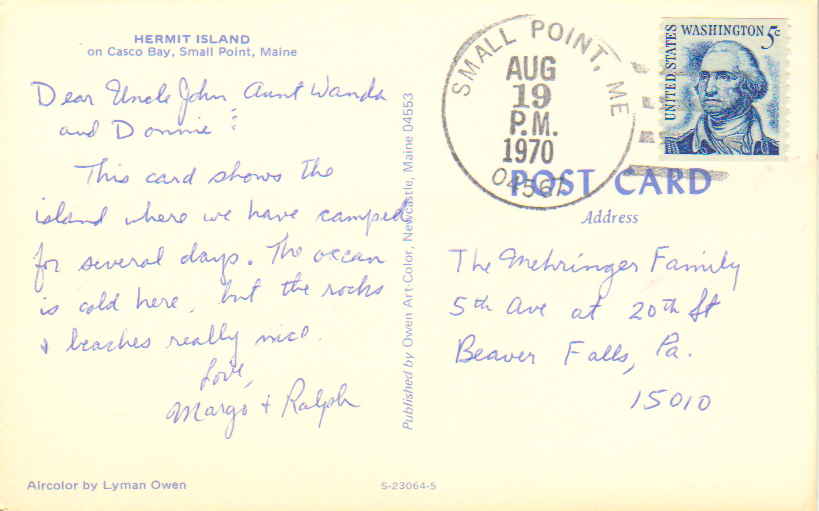 HERMIT ISLAND
on Casco Bay, Small Point, Maine
Dear Uncle John, Aunt Wanda
and Donnie:
This card shows the
island where we have camped
for several days. The ocean
is cold here, but the rocks
& beaches really nice.
Love,
Margo + Ralph
Aircolor by Lyman Owen
Published by Owen Art-Color, Newcastle, Maine 04553
S-23064-5
SMALL POINT, ME
AUG
19
P.M.
1970
04567
UNITED STATES
WASHINGTON 5c
POST CARD
Address
The Mehringer Family
5th Ave at 20th St
Beaver Falls, Pa.
15010